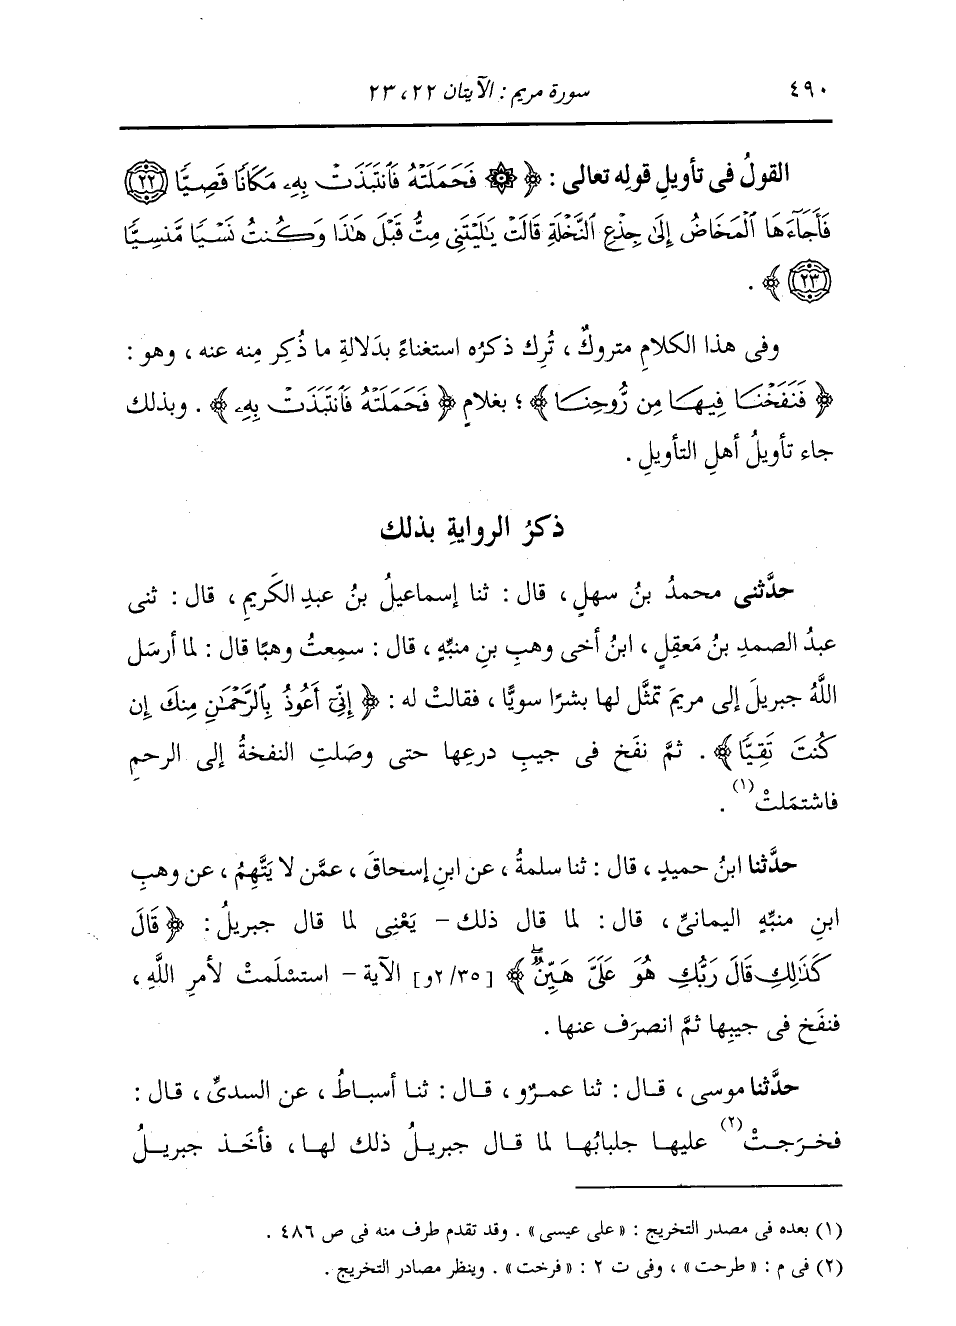 ٤٩٠ سورة مريم : الآيتان ٢٢، ٢٣
القولُ فى تأويلِ قولِه تعالى : ﴿ ۞ فَحَمَلَتْهُ فَٱنتَبَذَتْ بِهِۦ مَكَانًا قَصِيًّا ﴿٢٢﴾
فَأَجَآءَهَا ٱلْمَخَاضُ إِلَىٰ جِذْعِ ٱلنَّخْلَةِ قَالَتْ يَٰلَيْتَنِى مِتُّ قَبْلَ هَٰذَا وَكُنتُ نَسْيًا مَّنسِيًّا
﴿٢٣﴾ ﴾ .
وفى هذا الكلامِ متروكٌ ، تُرِك ذكرُه استغناءً بدَلالةِ ما ذُكِر مِنه عنه ، وهو :
﴿ فَنَفَخْنَا فِيهَا مِن رُّوحِنَا ﴾ ؛ بغلامٍ ﴿ فَحَمَلَتْهُ فَٱنتَبَذَتْ بِهِۦ ﴾ . وبذلك
جاء تأويلُ أهلِ التأويلِ .
ذكرُ الروايةِ بذلك
حدَّثنى محمدُ بنُ سهلٍ ، قال : ثنا إسماعيلُ بنُ عبدِ الكَريمِ ، قال : ثنى
عبدُ الصمدِ بنُ مَعقِلٍ ، ابنُ أخى وهبِ بنِ منبِّهٍ ، قال : سمِعتُ وهبًا قال : لما أرسَل
اللَّهُ جبريلَ إلى مريمَ تمثَّل لها بشرًا سويًّا ، فقالتْ له : ﴿ إِنِّىٓ أَعُوذُ بِٱلرَّحْمَٰنِ مِنكَ إِن
كُنتَ تَقِيًّا ﴾ . ثمَّ نفَخ فى جيبِ درعِها حتى وصَلتِ النفخةُ إلى الرحمِ
فاشتملَتْ(١) .
حدَّثنا ابنُ حميدٍ ، قال : ثنا سلمةُ ، عن ابنِ إسحاقَ ، عمَّن لا يَتَّهِمُ ، عن وهبِ
ابنِ منبِّهٍ اليمانىِّ ، قال : لما قال ذلك – يَعْنِى لما قال جبريلُ : ﴿ قَالَ
كَذَٰلِكِ قَالَ رَبُّكِ هُوَ عَلَىَّ هَيِّنٌ ۖ ﴾ [٢/٣٥و] الآية – استسْلَمتْ لأمرِ اللَّهِ ،
فنفَخ فى جيبِها ثمَّ انصرَف عنها .
حدَّثنا موسى ، قال : ثنا عمرٌو ، قال : ثنا أسباطُ ، عن السدىِّ ، قال :
فخرَجتْ(٢) عليها جلبابُها لما قال جبريلُ ذلك لها ، فأخَذ جبريلُ
(١) بعده فى مصدر التخريج : « على عيسى » . وقد تقدم طرف منه فى ص ٤٨٦ .
(٢) فى م : « طرحت » ، وفى ت ٢ : « فرخت » . وينظر مصادر التخريج .